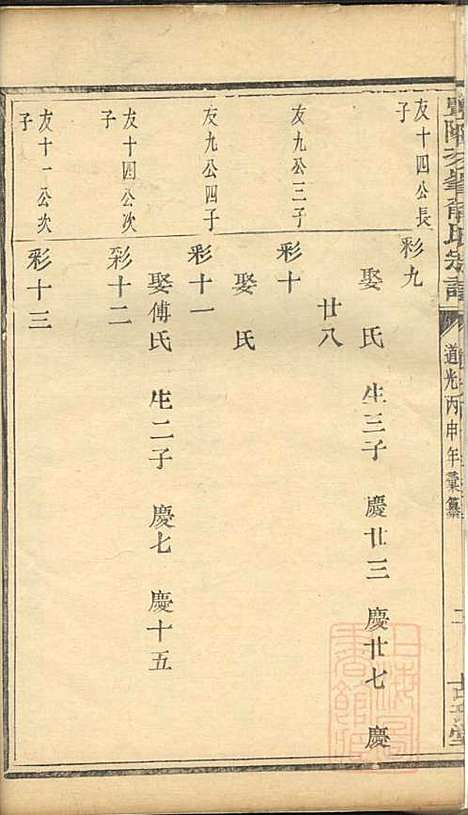 道光丙申年彙纂
友十四公長
子
彩九
娶 氏 生三子 慶廿三 慶廿七 慶
廿八
友九公三子
彩十
娶 氏
友九公四子
彩十一
娶傅氏 生二子 慶七 慶十五
友十四公次
子
彩十二
友十一公次
子
彩十三